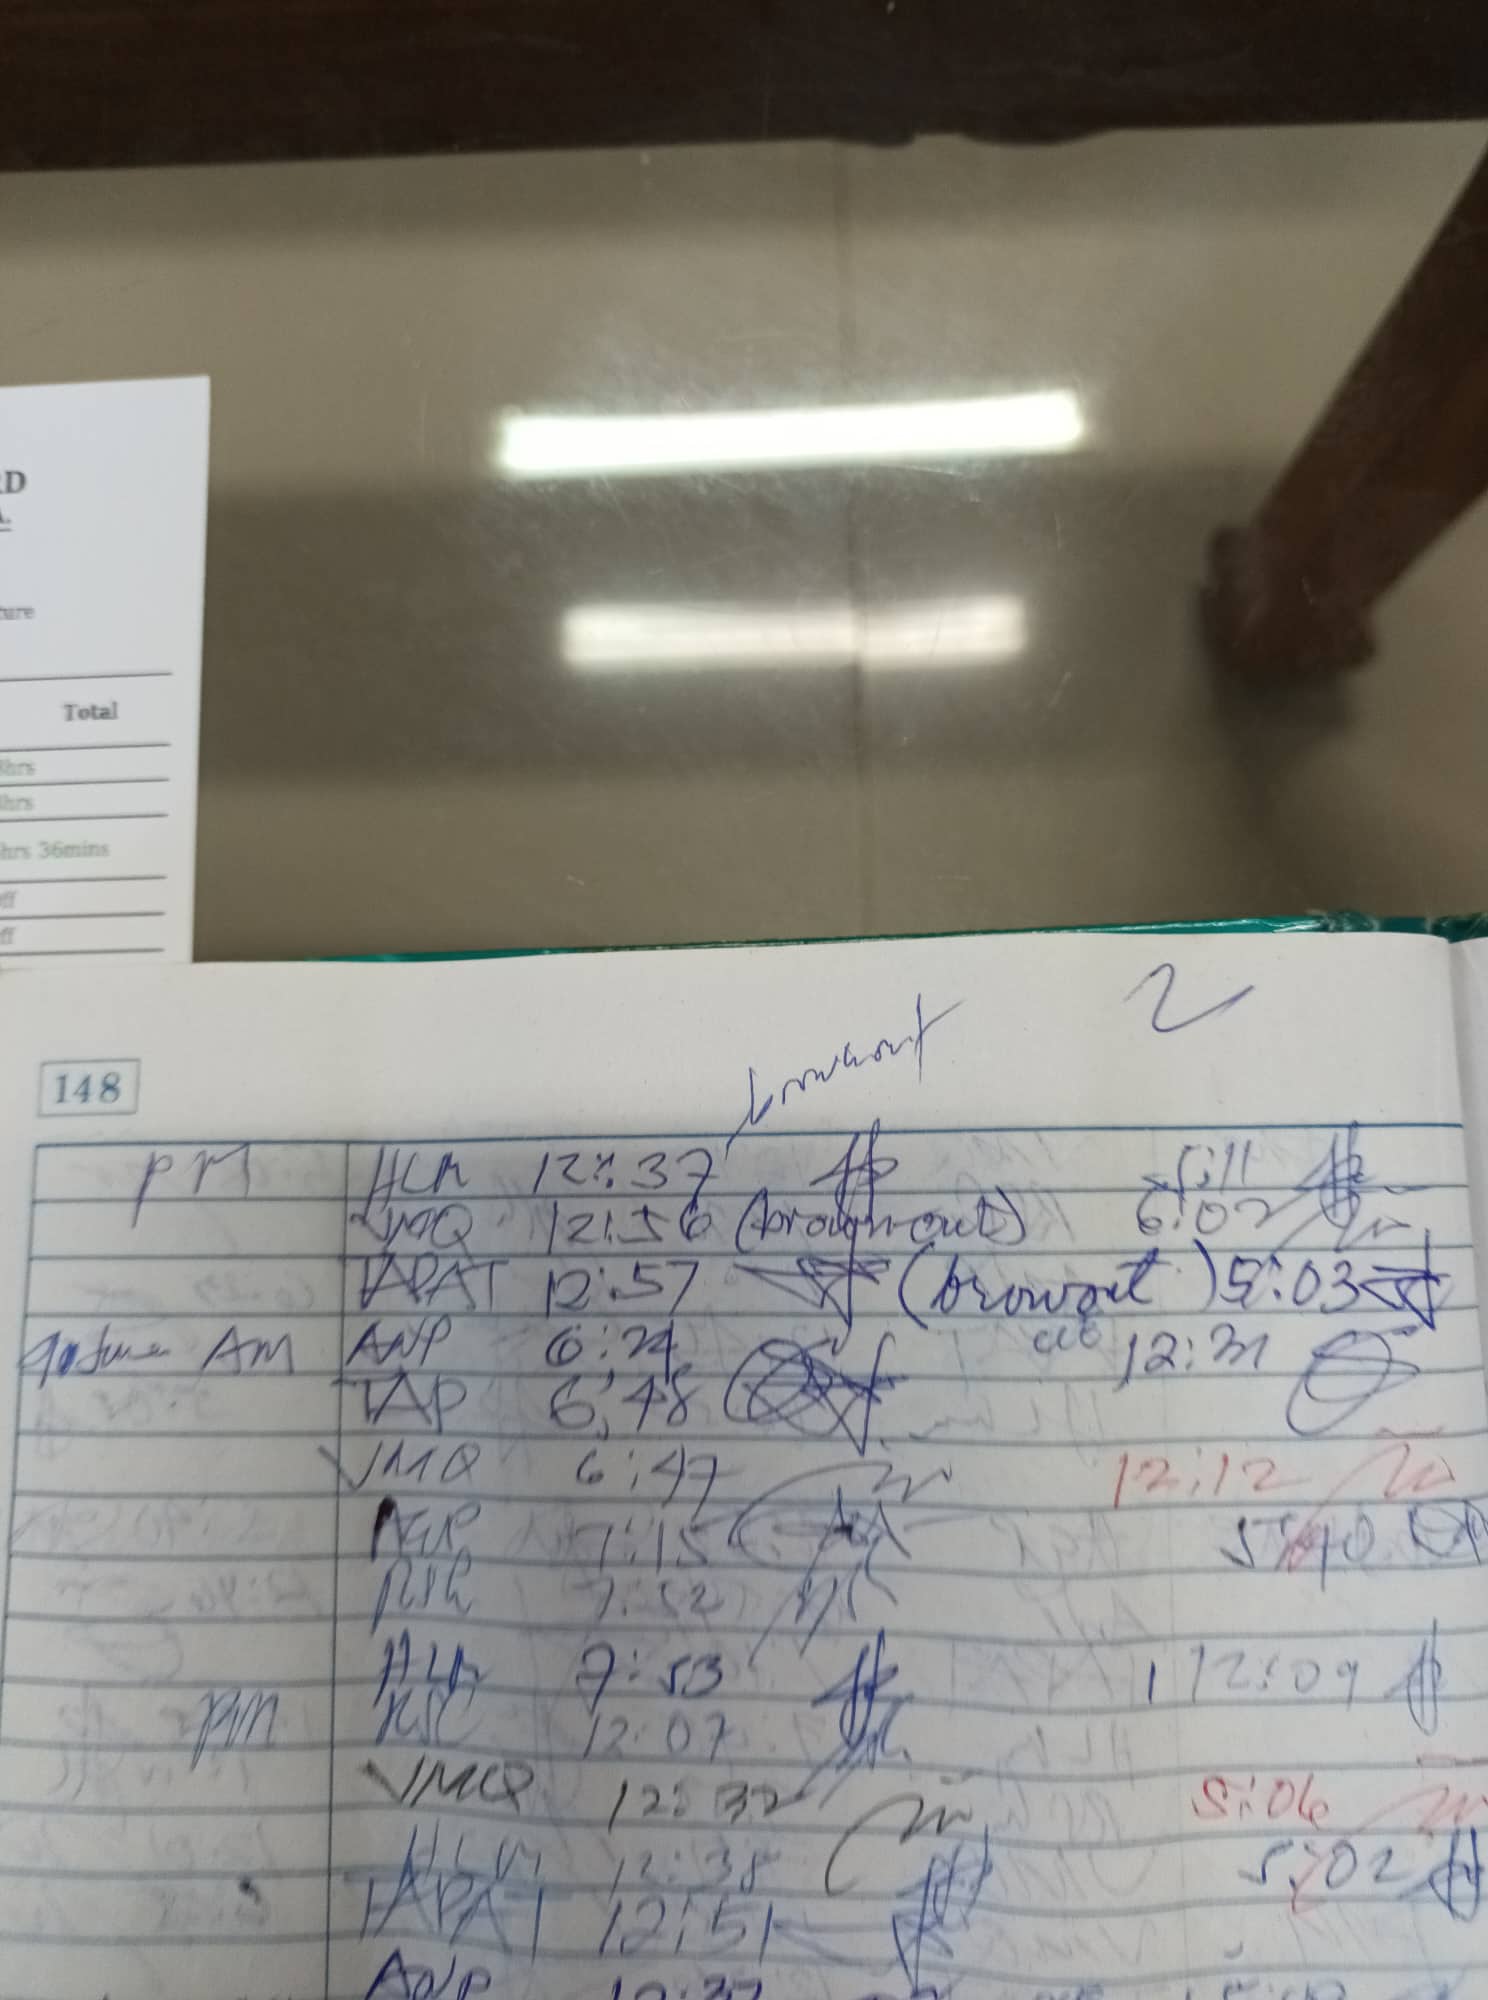 RD
A.
ture
Total
8hrs
8hrs
hrs 36mins
ff
ff
2
brownout
148
PM HLM 12:37 5:11
VMQ 12:56 (brown-out) 6:02
TAPAT 12:57 (brownout) 5:03
AM ANP 6:24 12:31
TAP 6:48
VMQ 6:47 12:12
AGP 7:15 5:40
7:52
HLM 7:53 12:09
PM RSC 12:07
VMQ 12:32 5:06
HLM 12:38 5:02
TAPAT 12:51
ANP